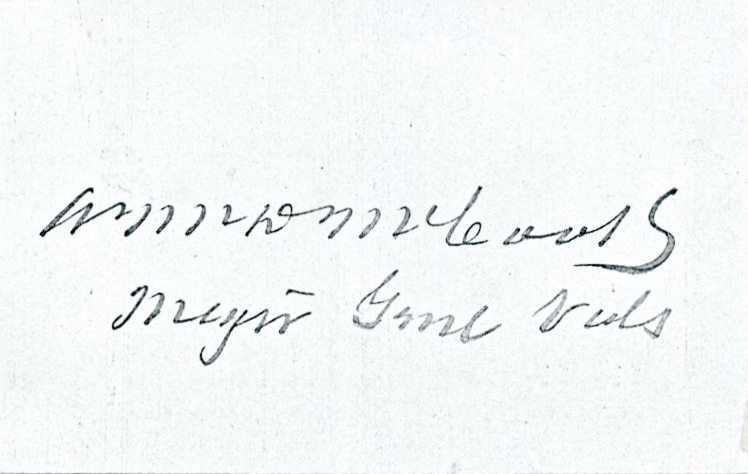 A McD McCook
Major Genl Vols